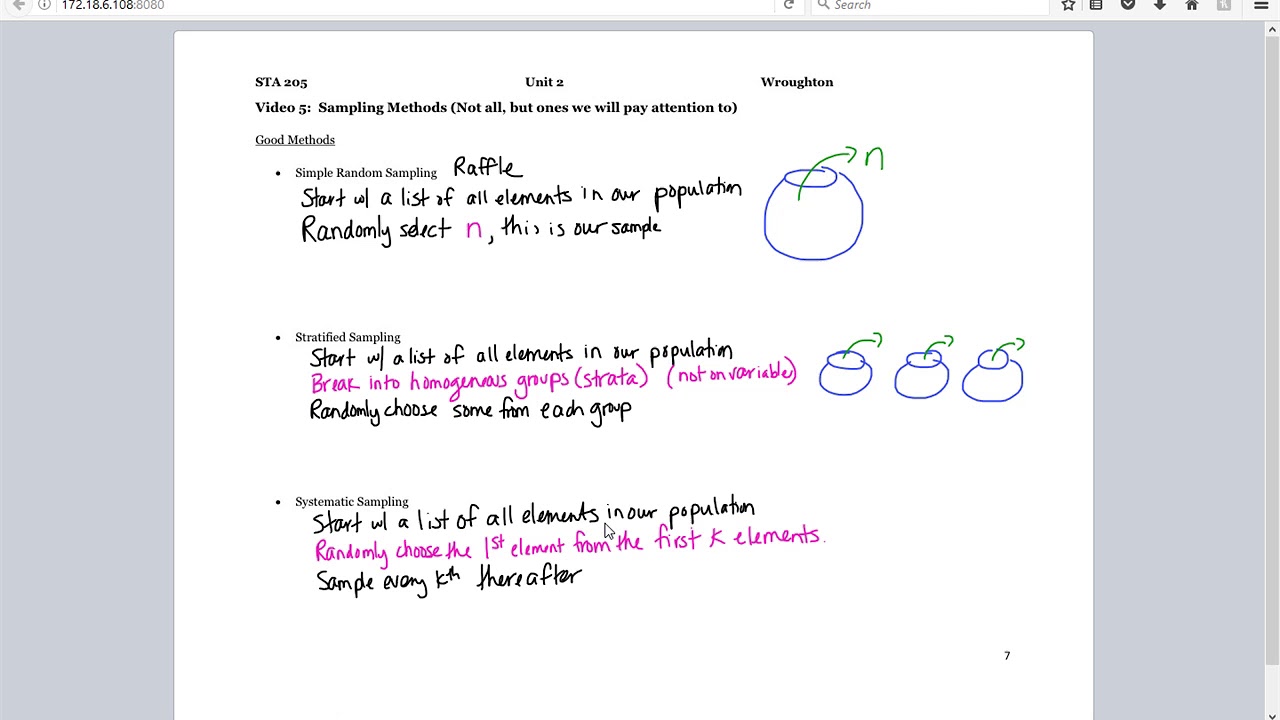 172.18.6.108:8080
Search
STA 205 Unit 2 Wroughton
Video 5: Sampling Methods (Not all, but ones we will pay attention to)
Good Methods
• Simple Random Sampling Raffle
n
Start w/ a list of all elements in our population
Randomly select n, this is our sample
• Stratified Sampling
Start w/ a list of all elements in our population
Break into homogenous groups (strata) (not on variable)
Randomly choose some from each group
• Systematic Sampling
Start w/ a list of all elements in our population
Randomly choose the 1st element from the first K elements.
Sample every Kth thereafter
7